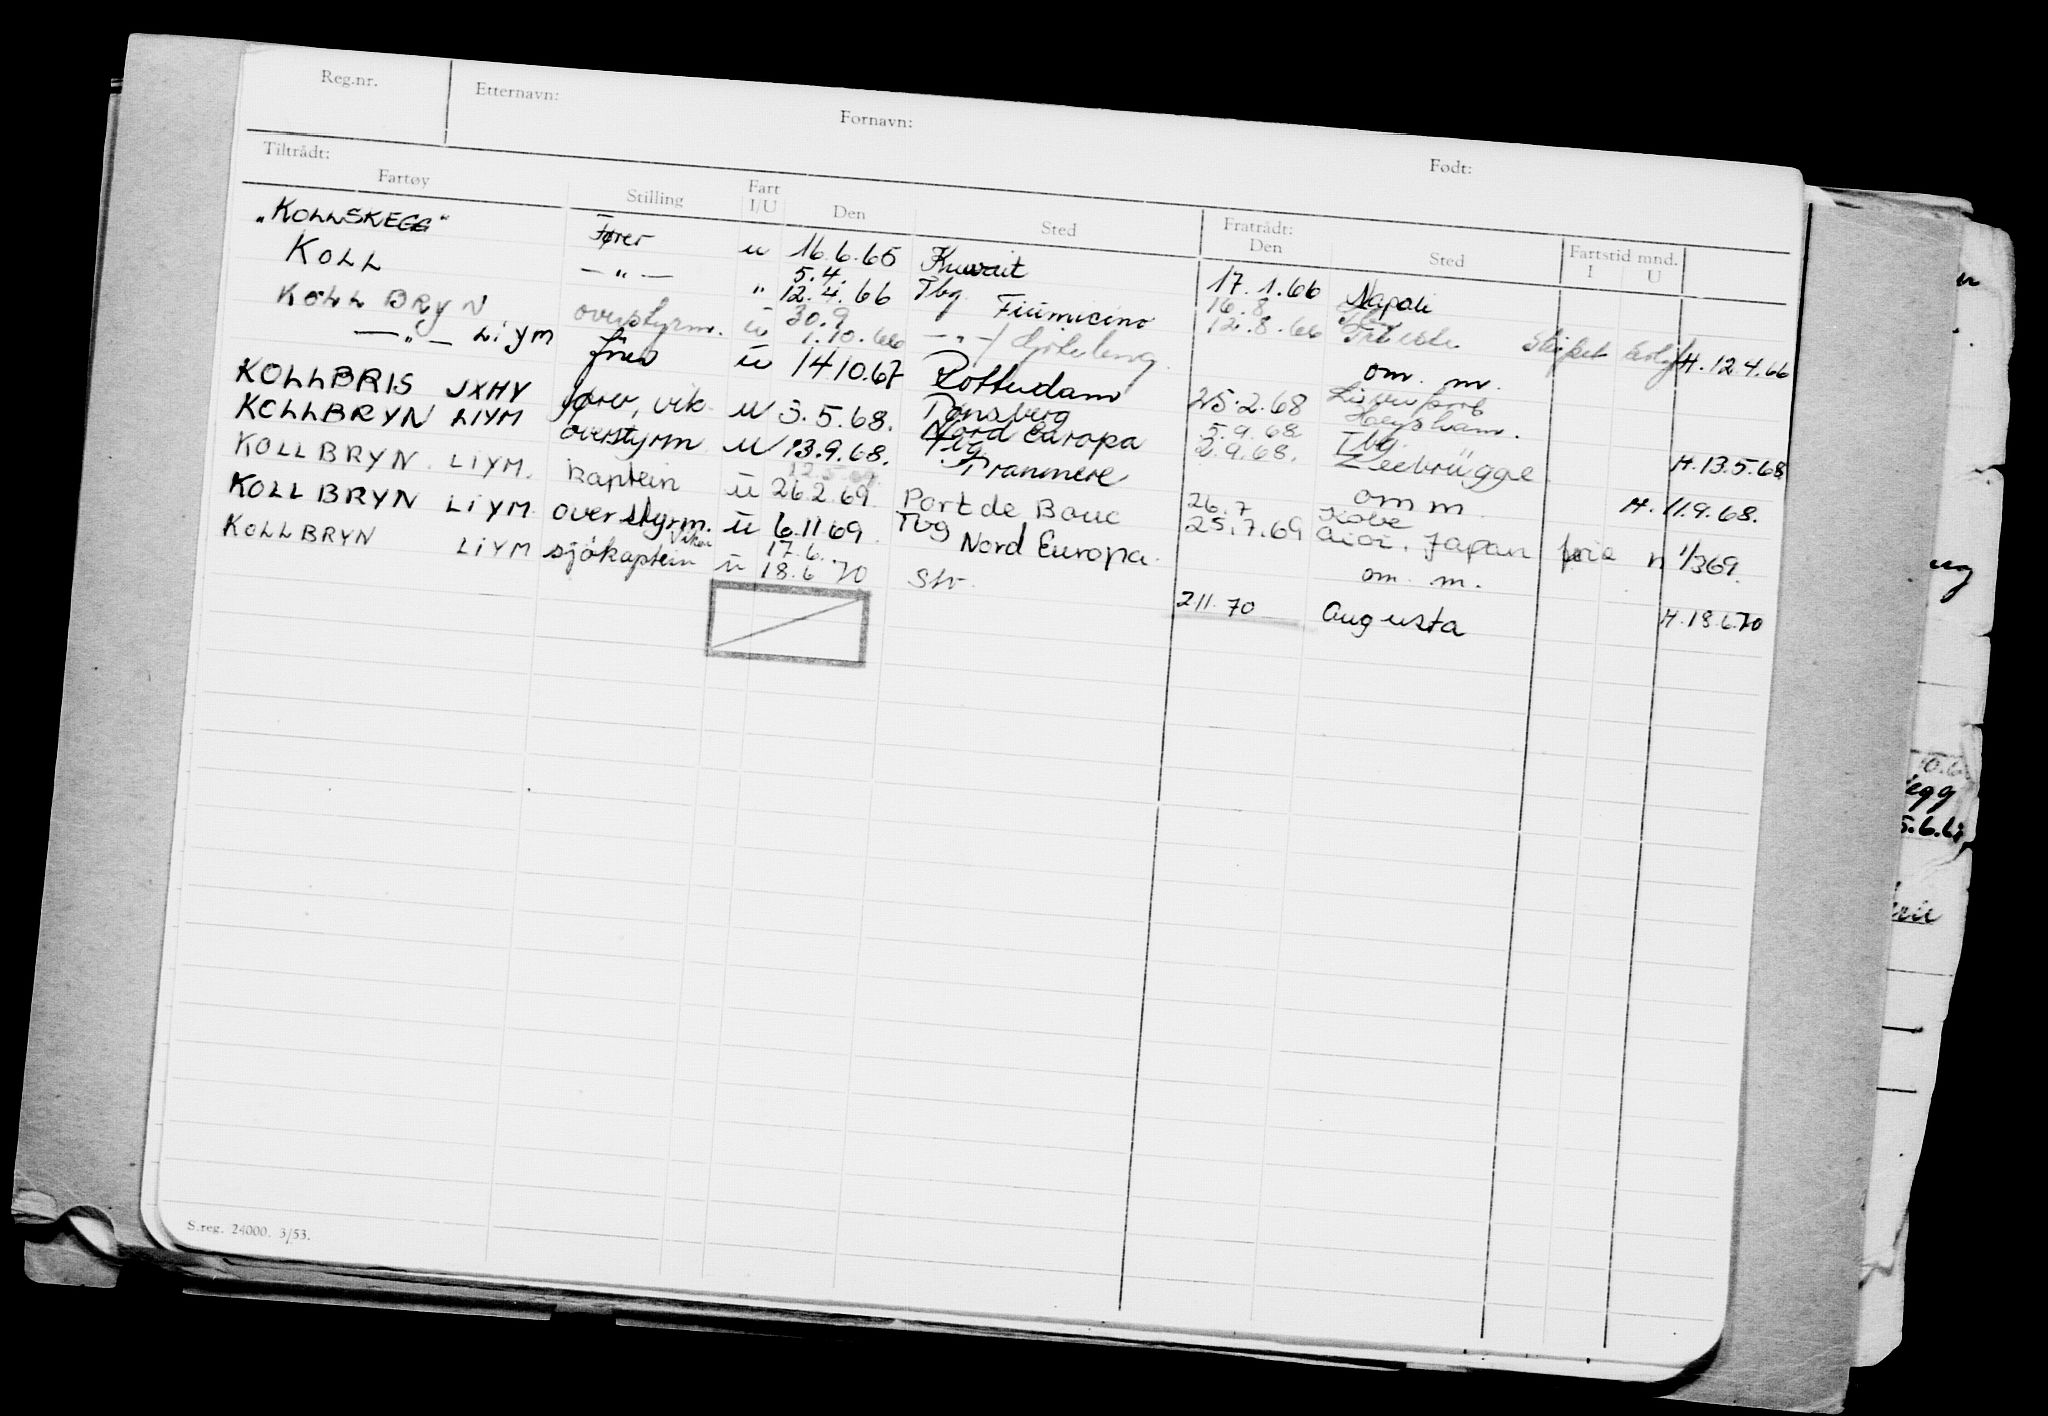 Reg.nr. Etternavn: Fornavn: Født:
Tiltrådt: Fratrådt:
Fartøy Stilling Fart I/U Den Sted Den Sted Fartstid mnd. I U
"KOLLSKEGG" Fører u 16.6.65 Kuwait 17.1.66 Napoli
KOLL —"— " 5.4. 12.4.66 Tbg. Fiumicino 16.8 12.8.66 Skipet H. 12.4.66
KOLL BRYN overstyrm. ü 30.9 1.10.66 —"—/ Gøteborg om. m.
—"— LIYM ü 14 10.67 Rotterdam 25.2.68
KOLLBRIS JXHY fører, vik. u 3.5.68. Tønsberg Nord Europa 5.9.68 2.9.68. Tbg. Zeebrügge H. 13.5.68
KOLLBRYN LIYM overstyrm u 13.9.68. Tbg. Tranmere om m. H. 11.9.68.
KOLLBRYN. LIYM. Kaptein ü 26.2.69. Port de Bouc 26.7 25.7.69 Kobe Aioi, Japan ferie n 1/369.
KOLLBRYN LIYM. overstyrm. ü 6.11 69. Tbg Nord Europa. om. m.
KOLLBRYN LIYM sjökaptein ü 17.6. 18.6 70 Stv. 2 11. 70 Augusta H. 18.6.70
S.reg. 24000. 3/53.
egg
5.6.6